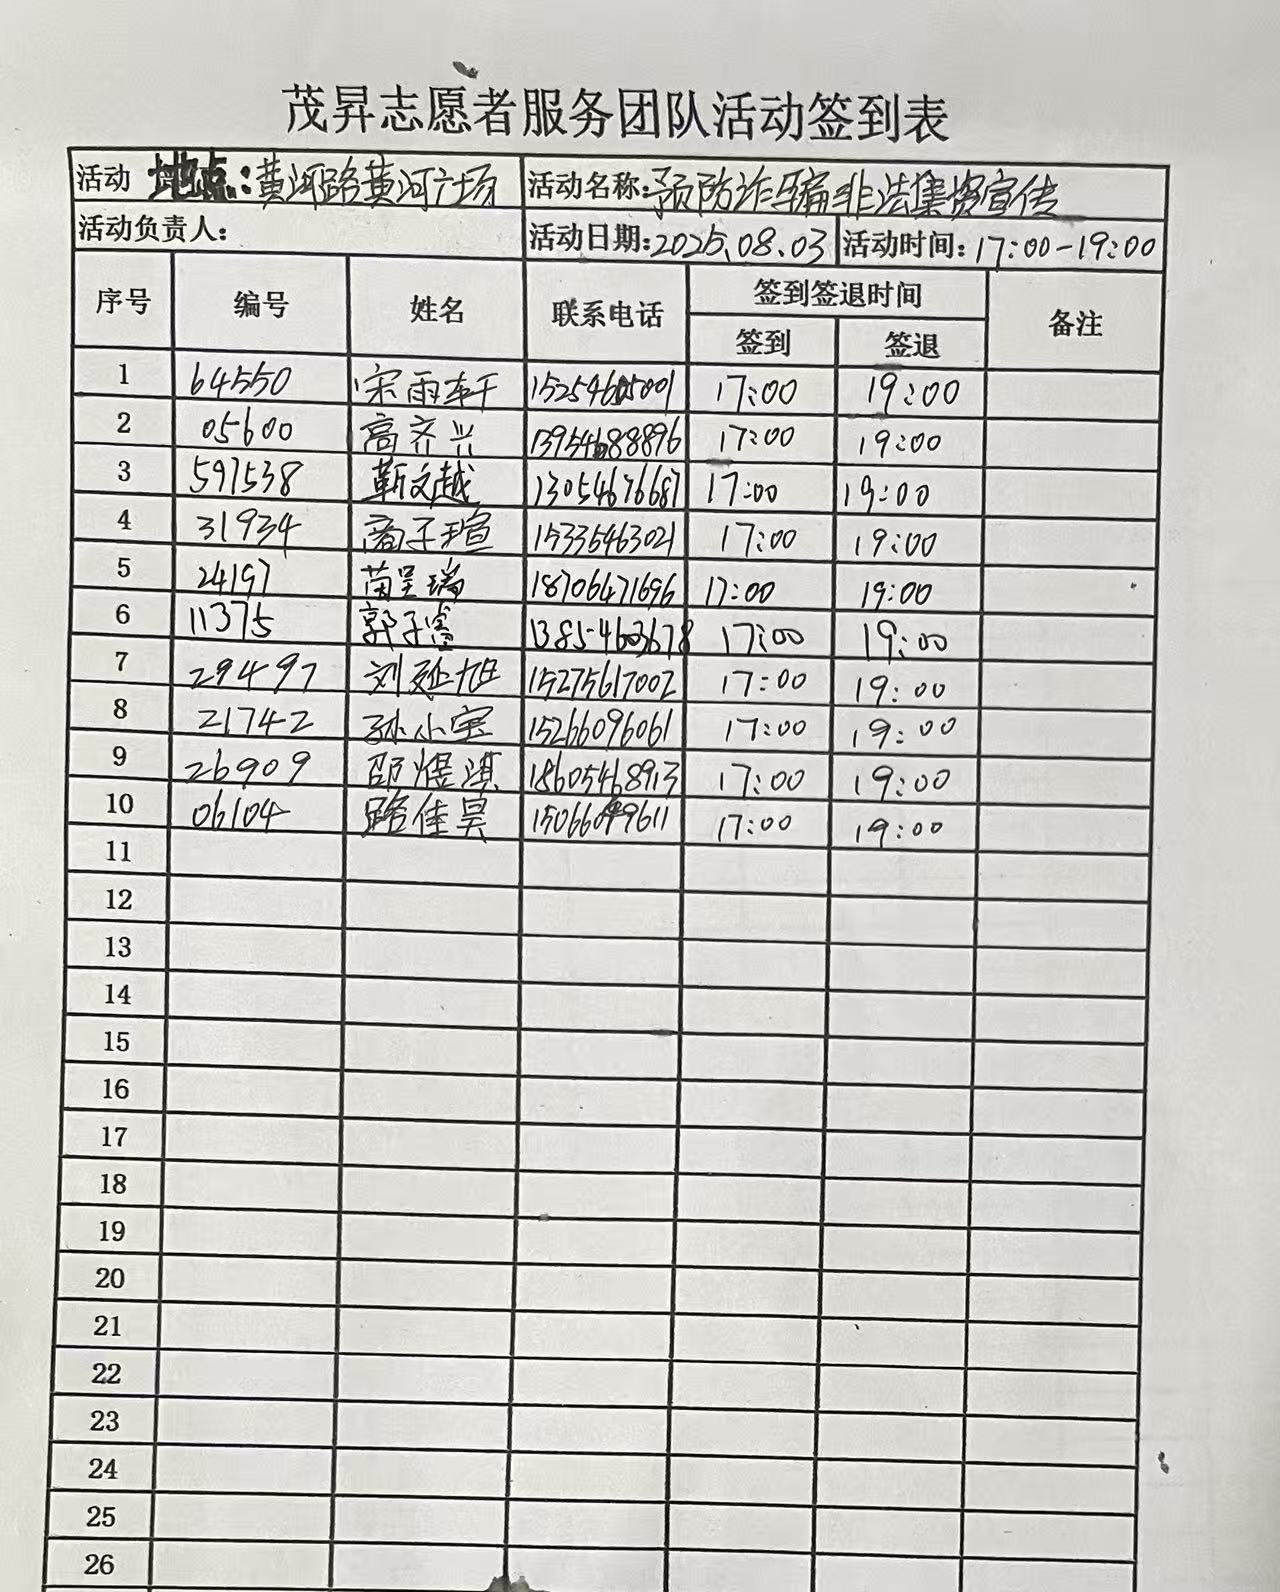 茂昇志愿者服务团队活动签到表
活动 地点:黄河路黄河广场 活动名称:预防诈骗非法集资宣传
活动负责人: 活动日期:2025.08.03 活动时间:17:00-19:00
序号 编号 姓名 联系电话 签到签退时间 备注
签到 签退
1 64550 宋雨轩 15254605001 17:00 19:00
2 05600 高齐兴 13954688896 17:00 19:00
3 597538 靳文越 13054676687 17:00 19:00
4 31934 商子瑄 15335463021 17:00 19:00
5 24197 苗呈瑞 18706471696 17:00 19:00
6 11375 郭子睿 13854603678 17:00 19:00
7 29497 刘延旭 15275617002 17:00 19:00
8 21742 孙小宝 15266096061 17:00 19:00
9 26909 邵煜淇 18605468913 17:00 19:00
10 06104 路佳昊 17:00 19:00
11
12
13
14
15
16
17
18
19
20
21
22
23
24
25
26